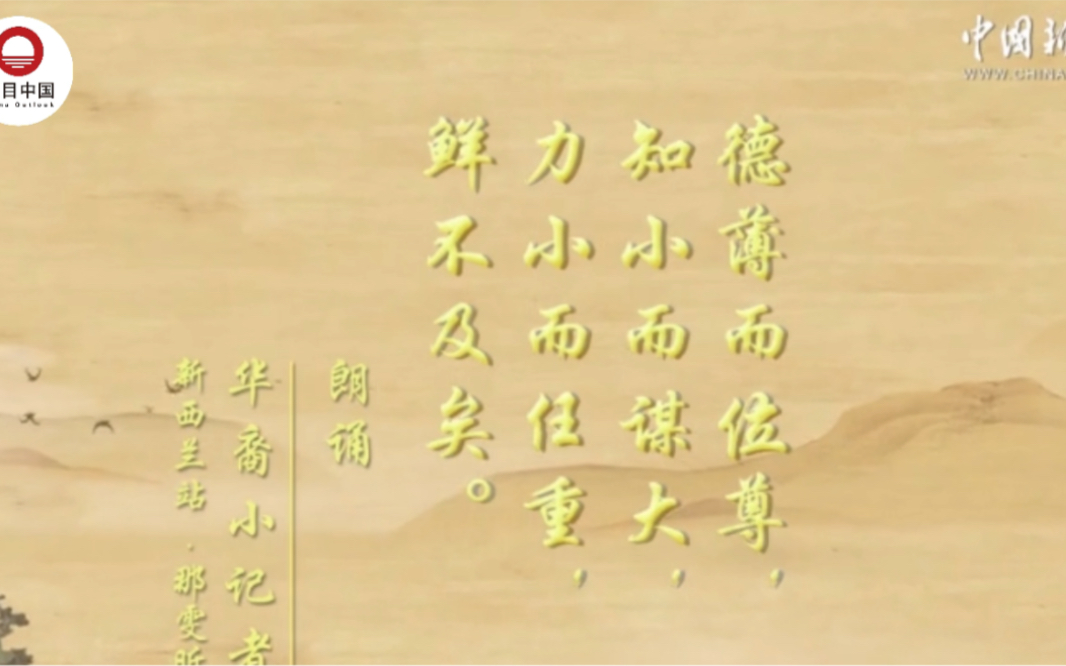 德薄而位尊，
知小而谋大，
力小而任重，
鲜不及矣。
朗诵
华裔小记者
新西兰站·那雯昕
目中国
na Outlook
中国新
WWW.CHINA